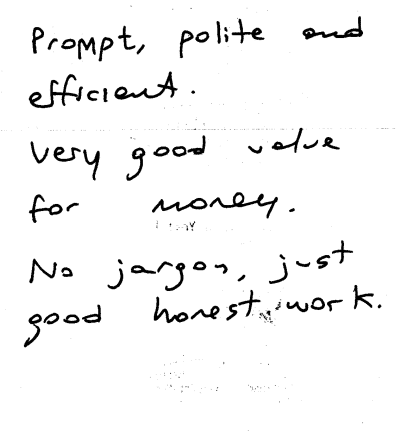 Prompt, polite and
efficient.
Very good value
for money.
No jargon, just
good honest work.